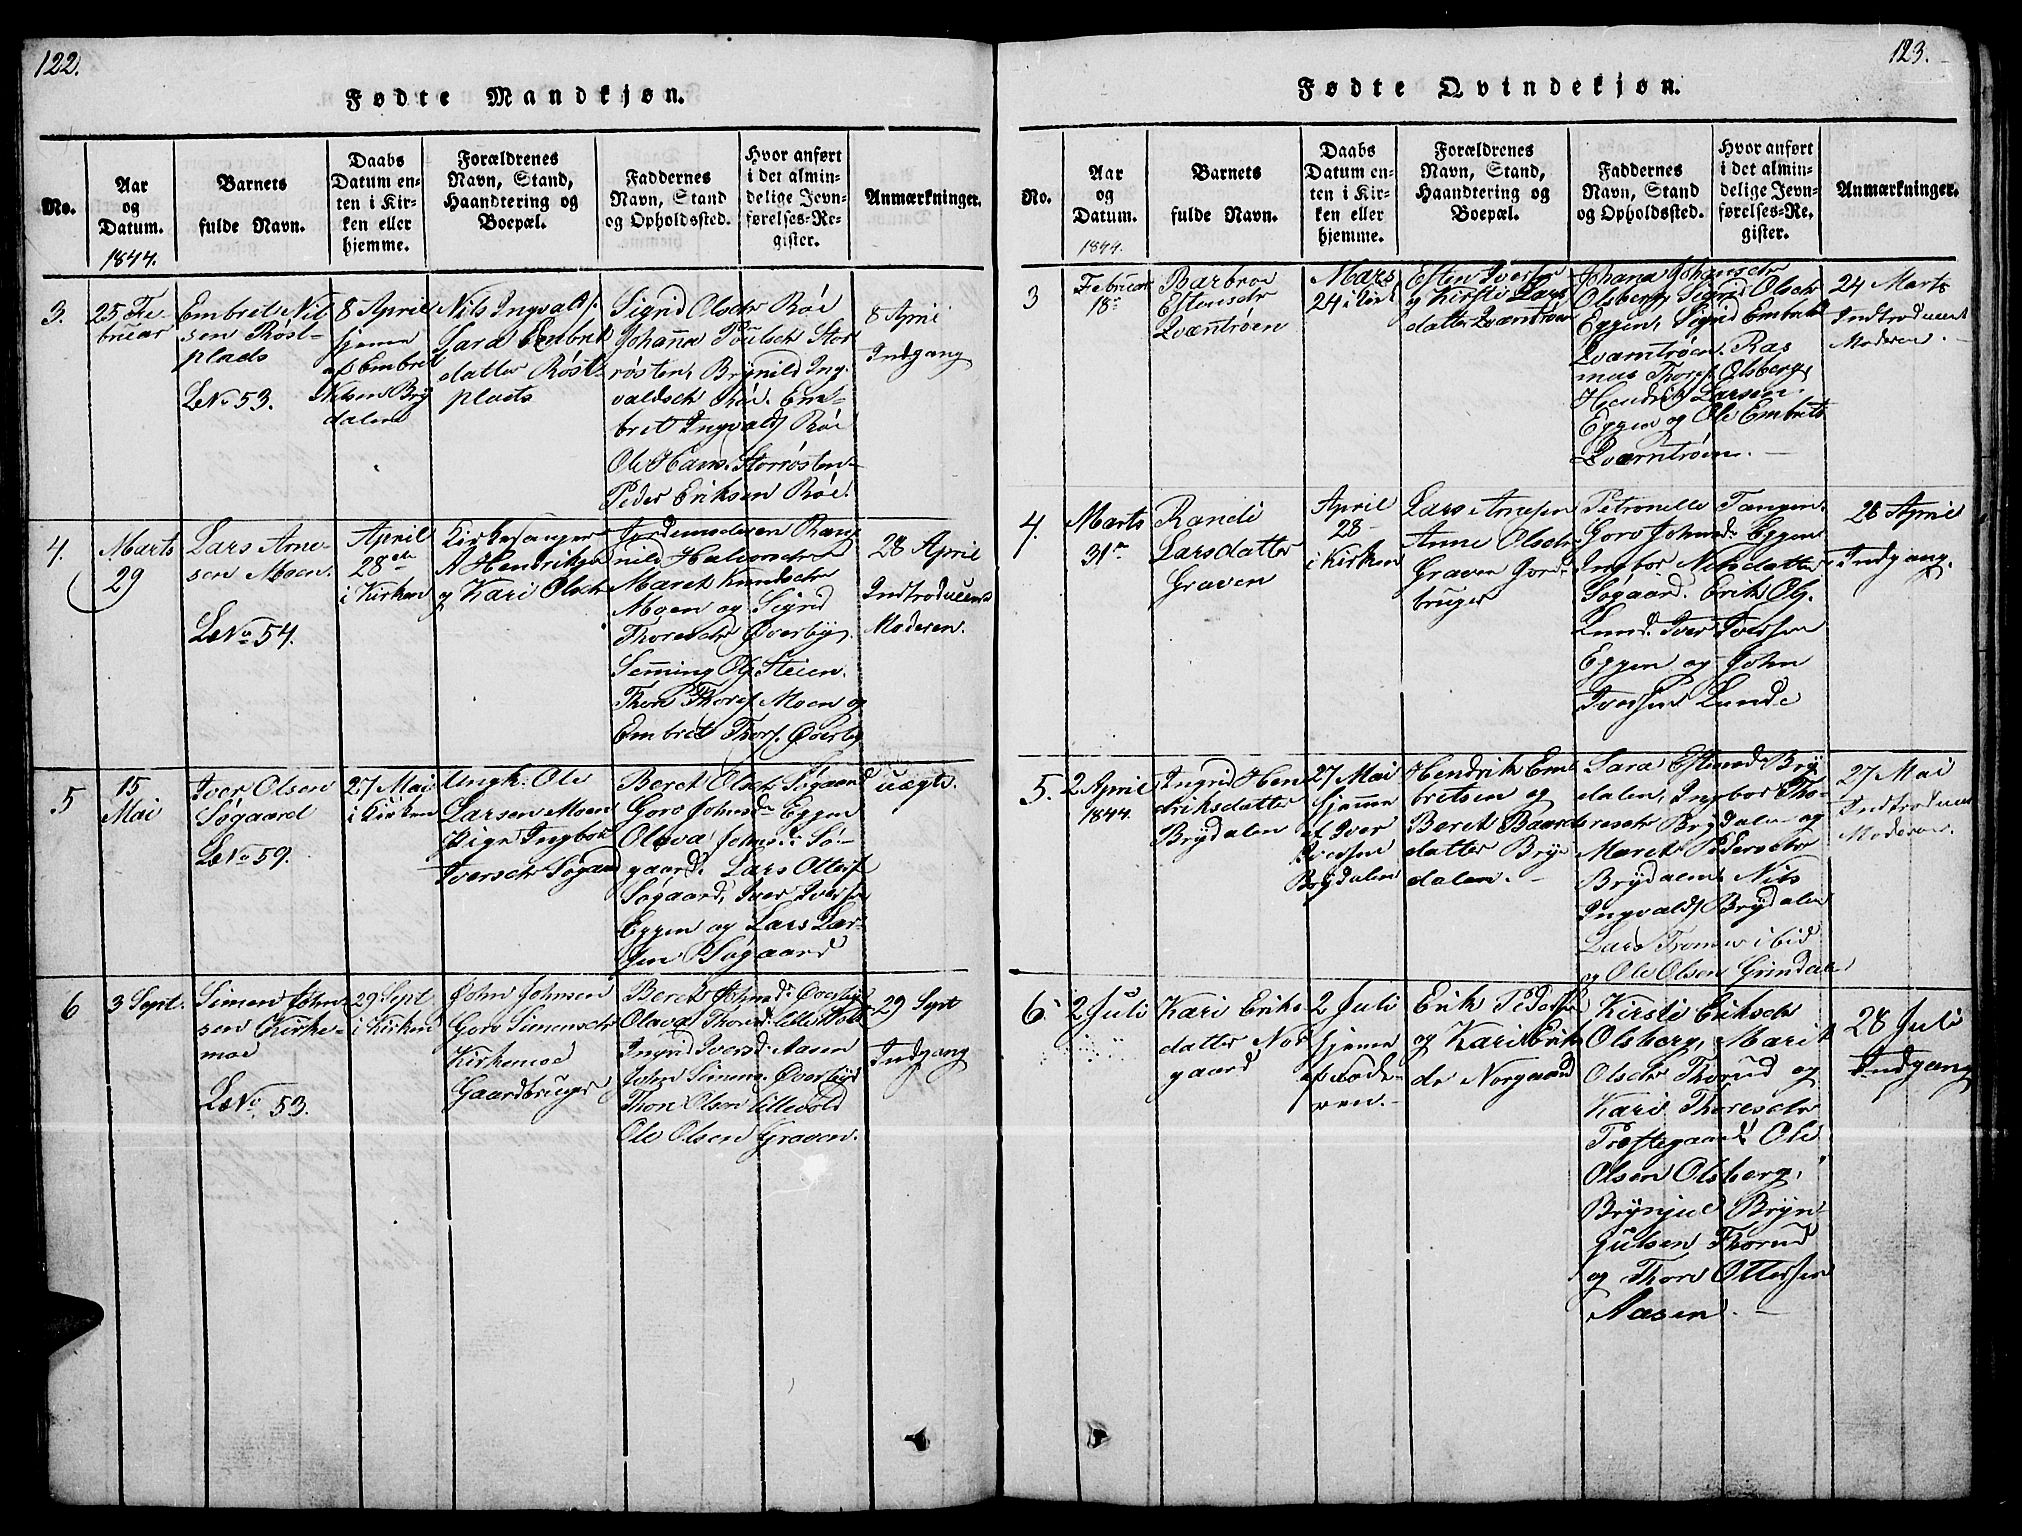 122.
Fødte Mandkjøn.
No.
Aar
og
Datum.
1844.
Barnets
fulde Navn.
Daabs
Datum en-
ten i Kir-
ken eller
hjemme.
Forældrenes
Navn, Stand,
Haandtering og
Boepæl.
Faddernes
Navn, Stand
og Opholdssted.
Hvor anført
i det almin-
delige Jevn-
førelses-Re-
gister.
Anmærkninger.
3.
25 Fe-
bruar
Embret Nil-
sen Røst-
plads
LNo 53.
8 April
hjemme
af Embret
Nilsen Bry
dalen
Nils Ingvalds.
Sara Embret
datter Røst-
plads
Sigrid Olsdr Røe
Johanna Poulsdr Stor
røsten, Brynild Ing-
valdsdr Røe. Em-
bret Ingvalds Røe
Ole Hans. Storrøsten
Peder Eriksen Røe.
8 April
Indgang
4.
Marts
29
Lars Arne-
sen Moen.
LNo 54.
April
28de
i Kirken
Kirkesanger
A Hendriksen
og Kari Olsdr
Jordemoderen Rang
nild Halvorsdr
Maret Knudsdr
Moen og Sigrid
Thoresdr Øverby,
Semming Ols Steien.
Thore Thores. Moen og
Embret Thors. Øverby
28 April
Indtroducert
Moderen.
5
15
Mai
Iver Olsen
Søgaard
LNo 59.
27 Mai
i Kirken
Ungk. Ole
Larsen Moen
Pige Ingbor
Iversdr Søgaard
Beret Olsdr Søgaard
Goro Johnsd. Eggen
Olava Johnsd. Sø-
gaard. Lars Olles
Søgaard, Iver Iversen
Eggen og Lars Lar-
sen Søgaard
uægte.
6
3 Sept.
Simen John-
sen Kirke-
moe
LNo 53.
29 Sept
i Kirken
John Johnsen
Goro Simensdr
Kirkemoe
Gaardbruger
Beret Johnsd. Øverbye
Olava Thoresd. lillevold
Ingrid Iversd. Aasen
John Simens. Øverbye
Thore Olsen lillevold
Ole Olsen Graven.
29 Sept
Indgang
123.
Fødte Qvindekjøn.
No.
Aar
og
Datum.
1844.
Barnets
fulde Navn.
Daabs
Datum en-
ten i Kir-
ken eller
hjemme.
Forældrenes
Navn, Stand,
Haandtering og
Boepæl.
Faddernes
Navn, Stand
og Opholdssted.
Hvor anført
i det almin-
delige Jevn-
førelses-Re-
gister.
Anmærkninger.
3
Februar
18de
Barbroe
Estensdr
Qværntrøen
Mars
24 i Kirk
Esten Iversen
og Kirsti Lars
datter Qværntrøen
Johana Johansdr
Olsberg, Sigrid Olsdr
Eggen, Sigrid Embretsd
Qværntrøen. Ras
mus Thores. Olsberg,
Hendrik Larsen
Eggen og Ole Embrets
Qværntrøen.
24 Marts
Indtroducert
Moderen.
4.
Marts
31te
Randi
Larsdatter
Graven
April
28
i Kirken
Lars Arnesen
Anne Olsdr
Graven Jord-
bruger
Petronelle Tangen.
Goro Johnsd. Eggen
Ingbor Nilsdatter
Søgaard. Erik Ols.
Lund. Iver Iversen
Eggen og John
Iversen Lunde
28 April
Indgang.
5.
2 April
1844.
Ingrid Hen
driksdatter
Brydalen
27 Mai
hjemme
af Iver
Iversen
Brydalen
Hendrik Em
bretsen og
Beret Baards
datter Bry-
dalen.
Sara Estensd. Bry
dalen, Ingbor Tho-
resdr Brydalen og
Maret Pedersdr
Brydalen Nils
Ingvalds Brydalen
Lars Tronsen ibid
og Ole Olsen Grindal
27 Mai
Indtroducert
Moderen.
6.
2 Juli
Kari Eriks
datter Nor
gaard
2 Juli
hjemme
af Fade-
ren.
Erik Peders.
og Kari Erik
dr Norgaard
Kirsti Eriksdr
Olsberg, Marit
Olsdr Thorud og
Kari Thoresdr
Præstegaard. Ole
Olsen Olsberg,
Brynjul Bryn-
julsen Thorud
og Thore Ottersen
Aasen.
28 Juli
Indgang